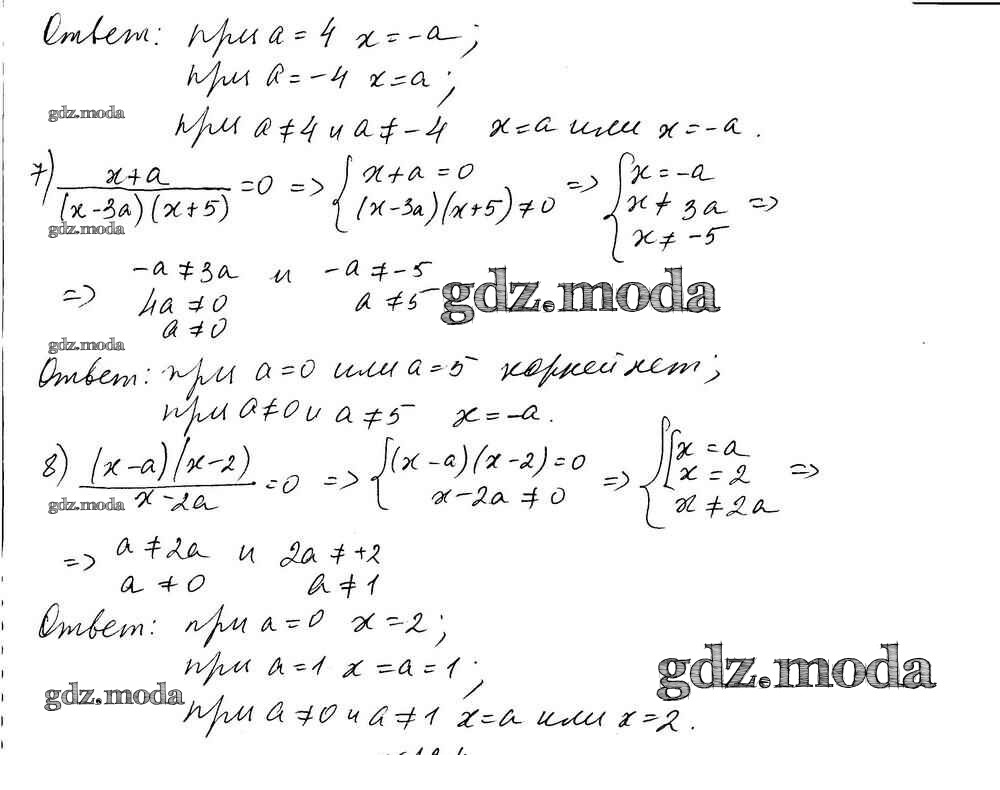 Ответ: при a = 4 x = -a;
при a = -4 x = a;
gdz.moda
при a ≠ 4 и a ≠ -4 x = a или x = -a.
7) (x+a)/((x-3a)(x+5)) = 0 => { x+a = 0; (x-3a)(x+5) ≠ 0 => { x = -a; x ≠ 3a; x ≠ -5 =>
gdz.moda
=> -a ≠ 3a и -a ≠ -5
4a ≠ 0 a ≠ 5
a ≠ 0
gdz.moda
gdz.moda
Ответ: при a = 0 или a = 5 корней нет;
при a ≠ 0 и a ≠ 5 x = -a.
8) ((x-a)(x-2))/(x-2a) = 0 => { (x-a)(x-2) = 0; x-2a ≠ 0 => { [ x = a; x = 2; x ≠ 2a =>
gdz.moda
=> a ≠ 2a и 2a ≠ +2
a ≠ 0 a ≠ 1
Ответ: при a = 0 x = 2;
при a = 1 x = a = 1;
gdz.moda
gdz.moda
при a ≠ 0 и a ≠ 1 x = a или x = 2.